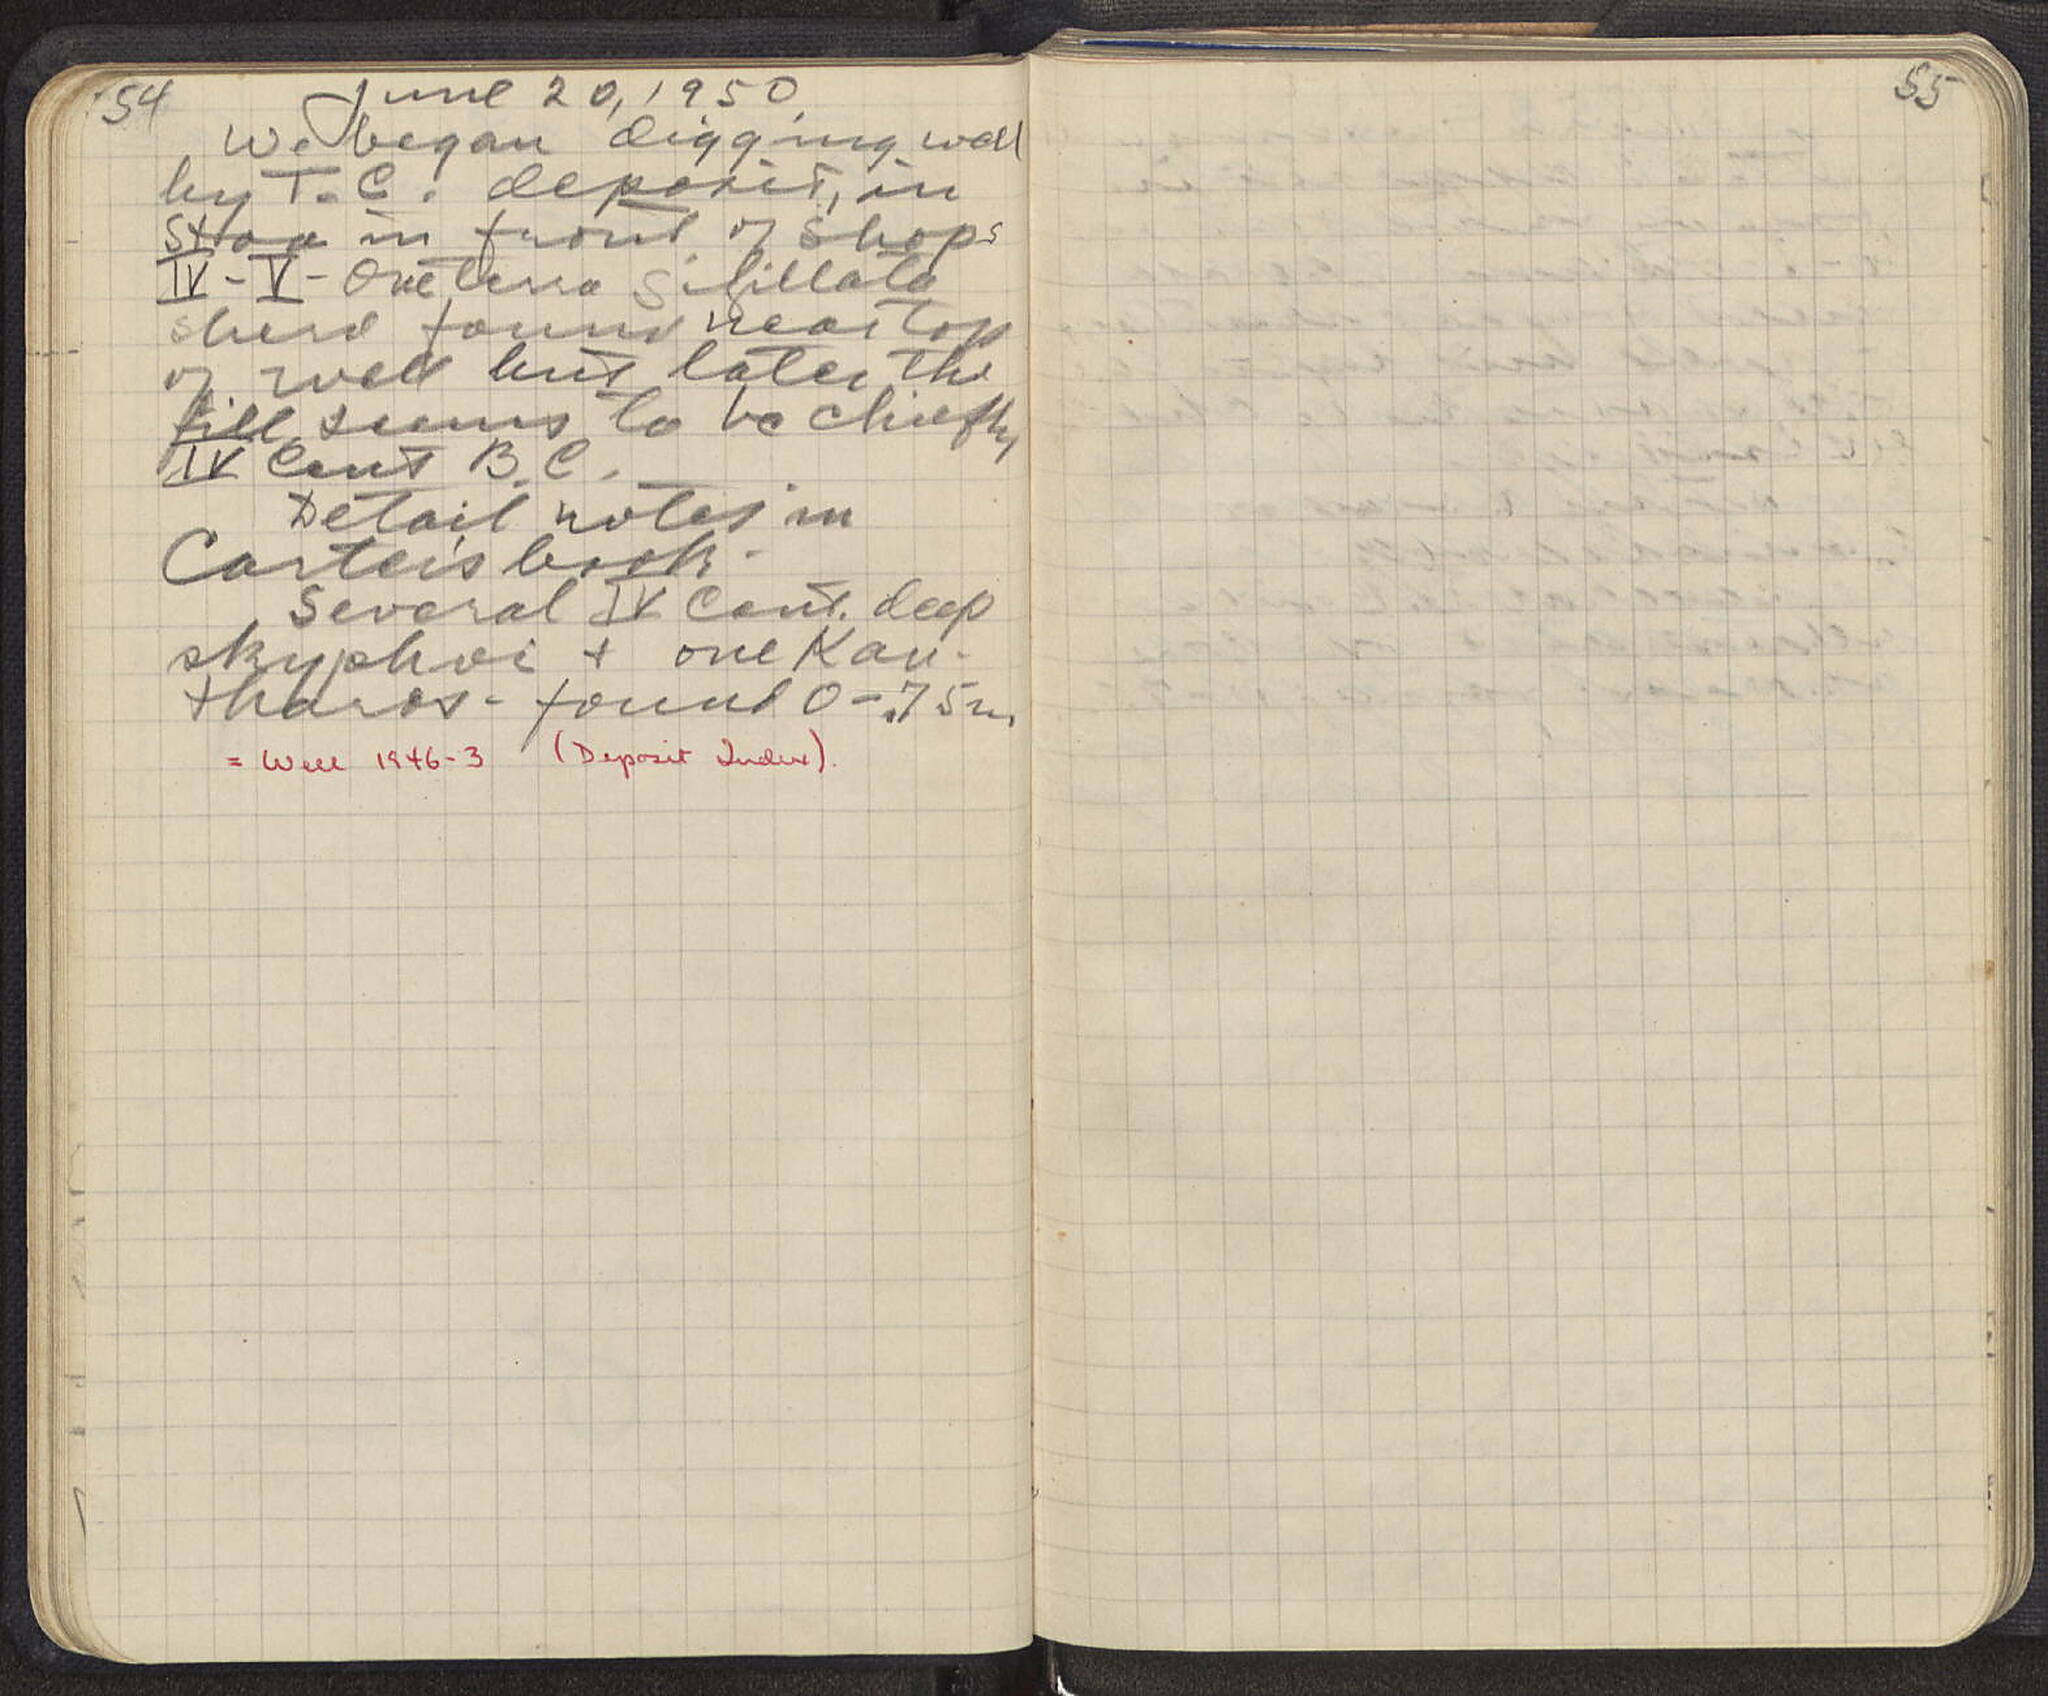 54
June 20, 1950
We began digging well
by T.C. deposit, in
Stoa in front of Shops
IV - V - One terra Sigillata
sherd found near top
of well but later the
fill seems to be chiefly
IV Cent B.C.
Detail notes in
Carter's book -
Several IV Cent. deep
skyphoi + one Kan-
tharos - found 0 - .75 m
= Well 1946-3 (Deposit Index).
55